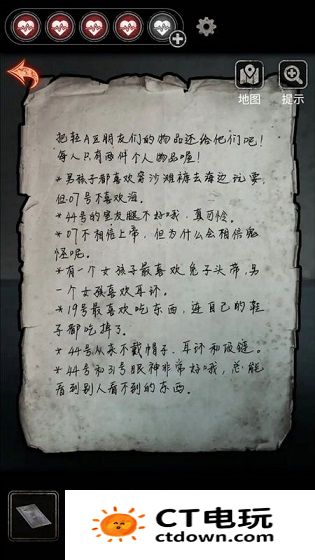 地图
提示
把轻A区朋友们的物品还给他们吧!
每人只有两件个人物品喔!
* 男孩子都喜欢穿沙滩裤去海边玩耍,
但07号不喜欢海。
* 44号的男友腿不好哦,真可怜。
* 07不相信上帝,但为什么会相信鬼
怪呢。
* 有一个女孩子最喜欢兔子头带,另
一个女孩喜欢耳环。
* 19号最喜欢吃东西,连自己的鞋
子都吃掉了。
* 44号从来不戴帽子、耳环和项链。
* 44号和31号眼神非常好哦,总能
看到别人看不到的东西。
CT电玩
ctdown.com